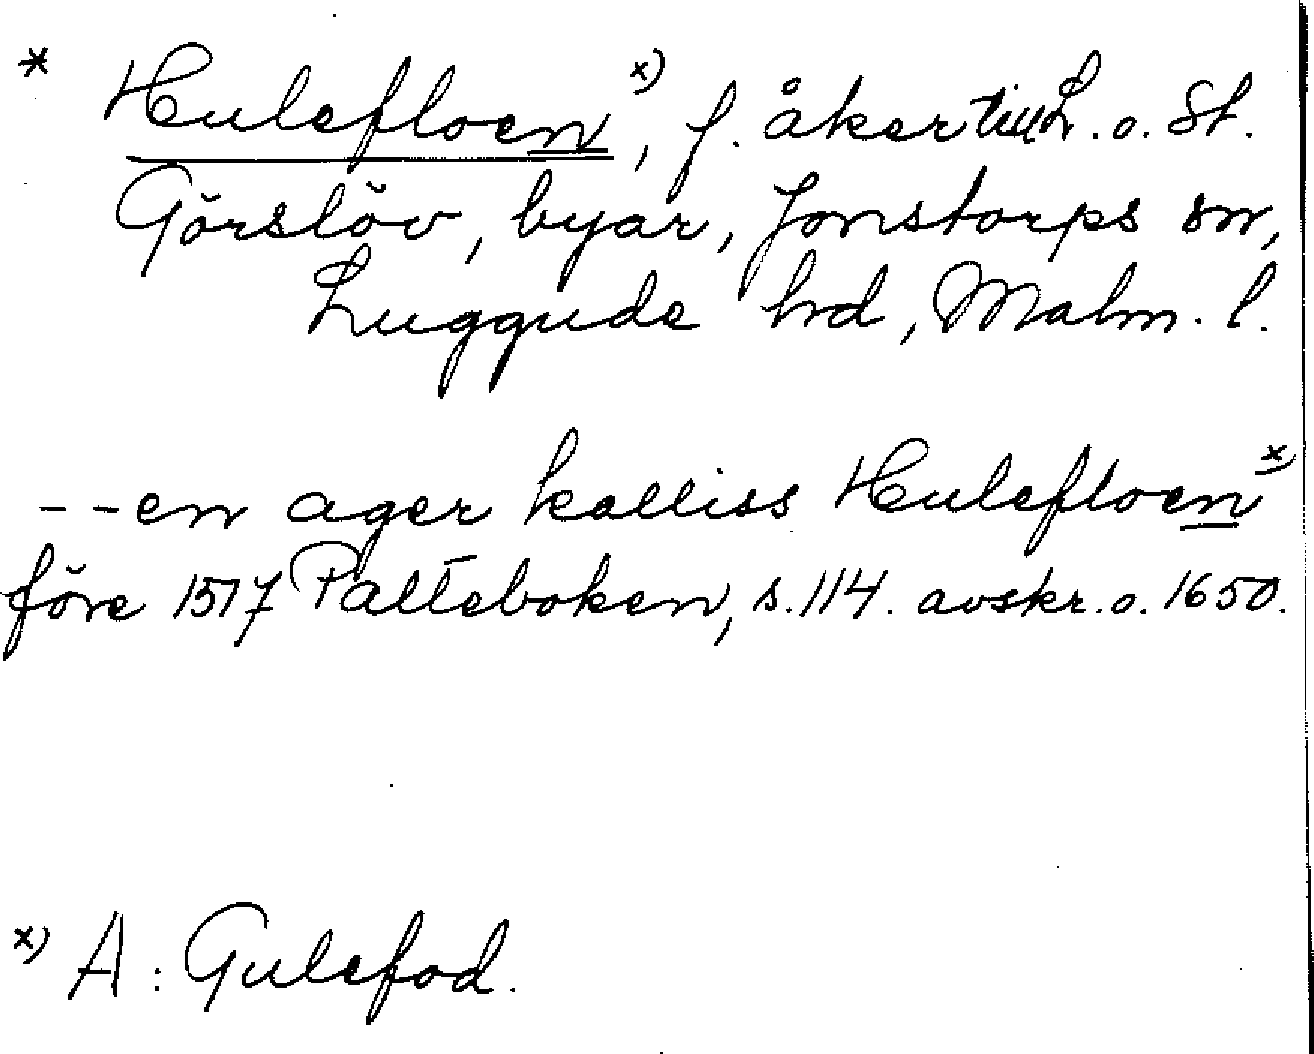 * Hulefloen x), f. åker till L. o. St.
Görslöv, byar, Jonstorps sn,
Luggude hd, Malm. l.
--en ager kalliss Hulefloen x)
före 1517 Palteboken, s. 114. avskr. o. 1650.
x) A: Gulefod.